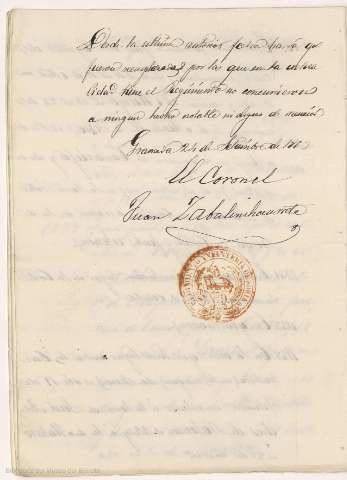 Desde la última anterior fecha hasta que
fueron reemplazadas por las que en la actua
lidad tiene el Regimiento no concurrieron
a ningun hecho notable ni digno de mencion
Granada 24 de Diciembre de
El Coronel
Juan Zabalinchaurreta
Biblioteca del Museo del Ejército